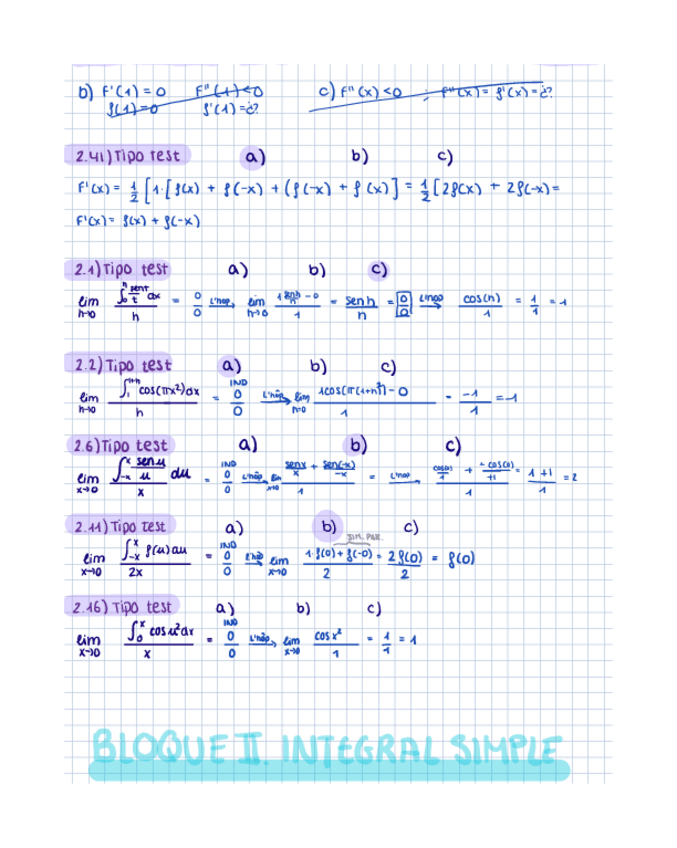 b) F'(1) = 0 F''(1)<0 c) F''(x)<0 ; F''(x) = f'(x) = ¿?
f(1)=0 f'(1) = ¿?
2.41) Tipo test a) b) c)
F'(x) = 1/2 [1·[f(x) + f(-x) + (f(-x) + f(x)] = 1/2 [2f(x) + 2f(-x) =
F'(x) = f(x) + f(-x)
2.1) Tipo test a) b) c)
lim h→0 ∫₀ʰ sent/t dx / h = 0/0 L'hop→ lim h→0 1 senh/h - 0 / 1 = senh/h = [0/0] L'hop→ cos(h)/1 = 1/1 = 1
2.2) Tipo test a) b) c)
lim h→0 ∫₁¹⁺ʰ cos(πx²)dx / h = IND 0/0 L'hôp→ lim h→0 1cos(π(1+h)²) - 0 / 1 = -1/1 = -1
2.6) Tipo test a) b) c)
lim x→0 ∫₋ₓˣ senu/u du / x = IND 0/0 L'hôp→ lim x→0 senx/x + sen(-x)/-x / 1 = L'hop→ cos(0)/1 + -cos(0)/+1 / 1 = 1+1/1 = 2
2.11) Tipo test a) b) c)
SIM. PAR.
lim x→0 ∫₋ₓˣ f(u)du / 2x = IND 0/0 L'hôp→ lim x→0 1·f(0) + f(-0) / 2 = 2f(0)/2 = f(0)
2.16) Tipo test a) b) c)
lim x→0 ∫₀ˣ cosu²dx / x = IND 0/0 L'hôp→ lim x→0 cosx²/1 = 1/1 = 1
BLOQUE II. INTEGRAL SIMPLE